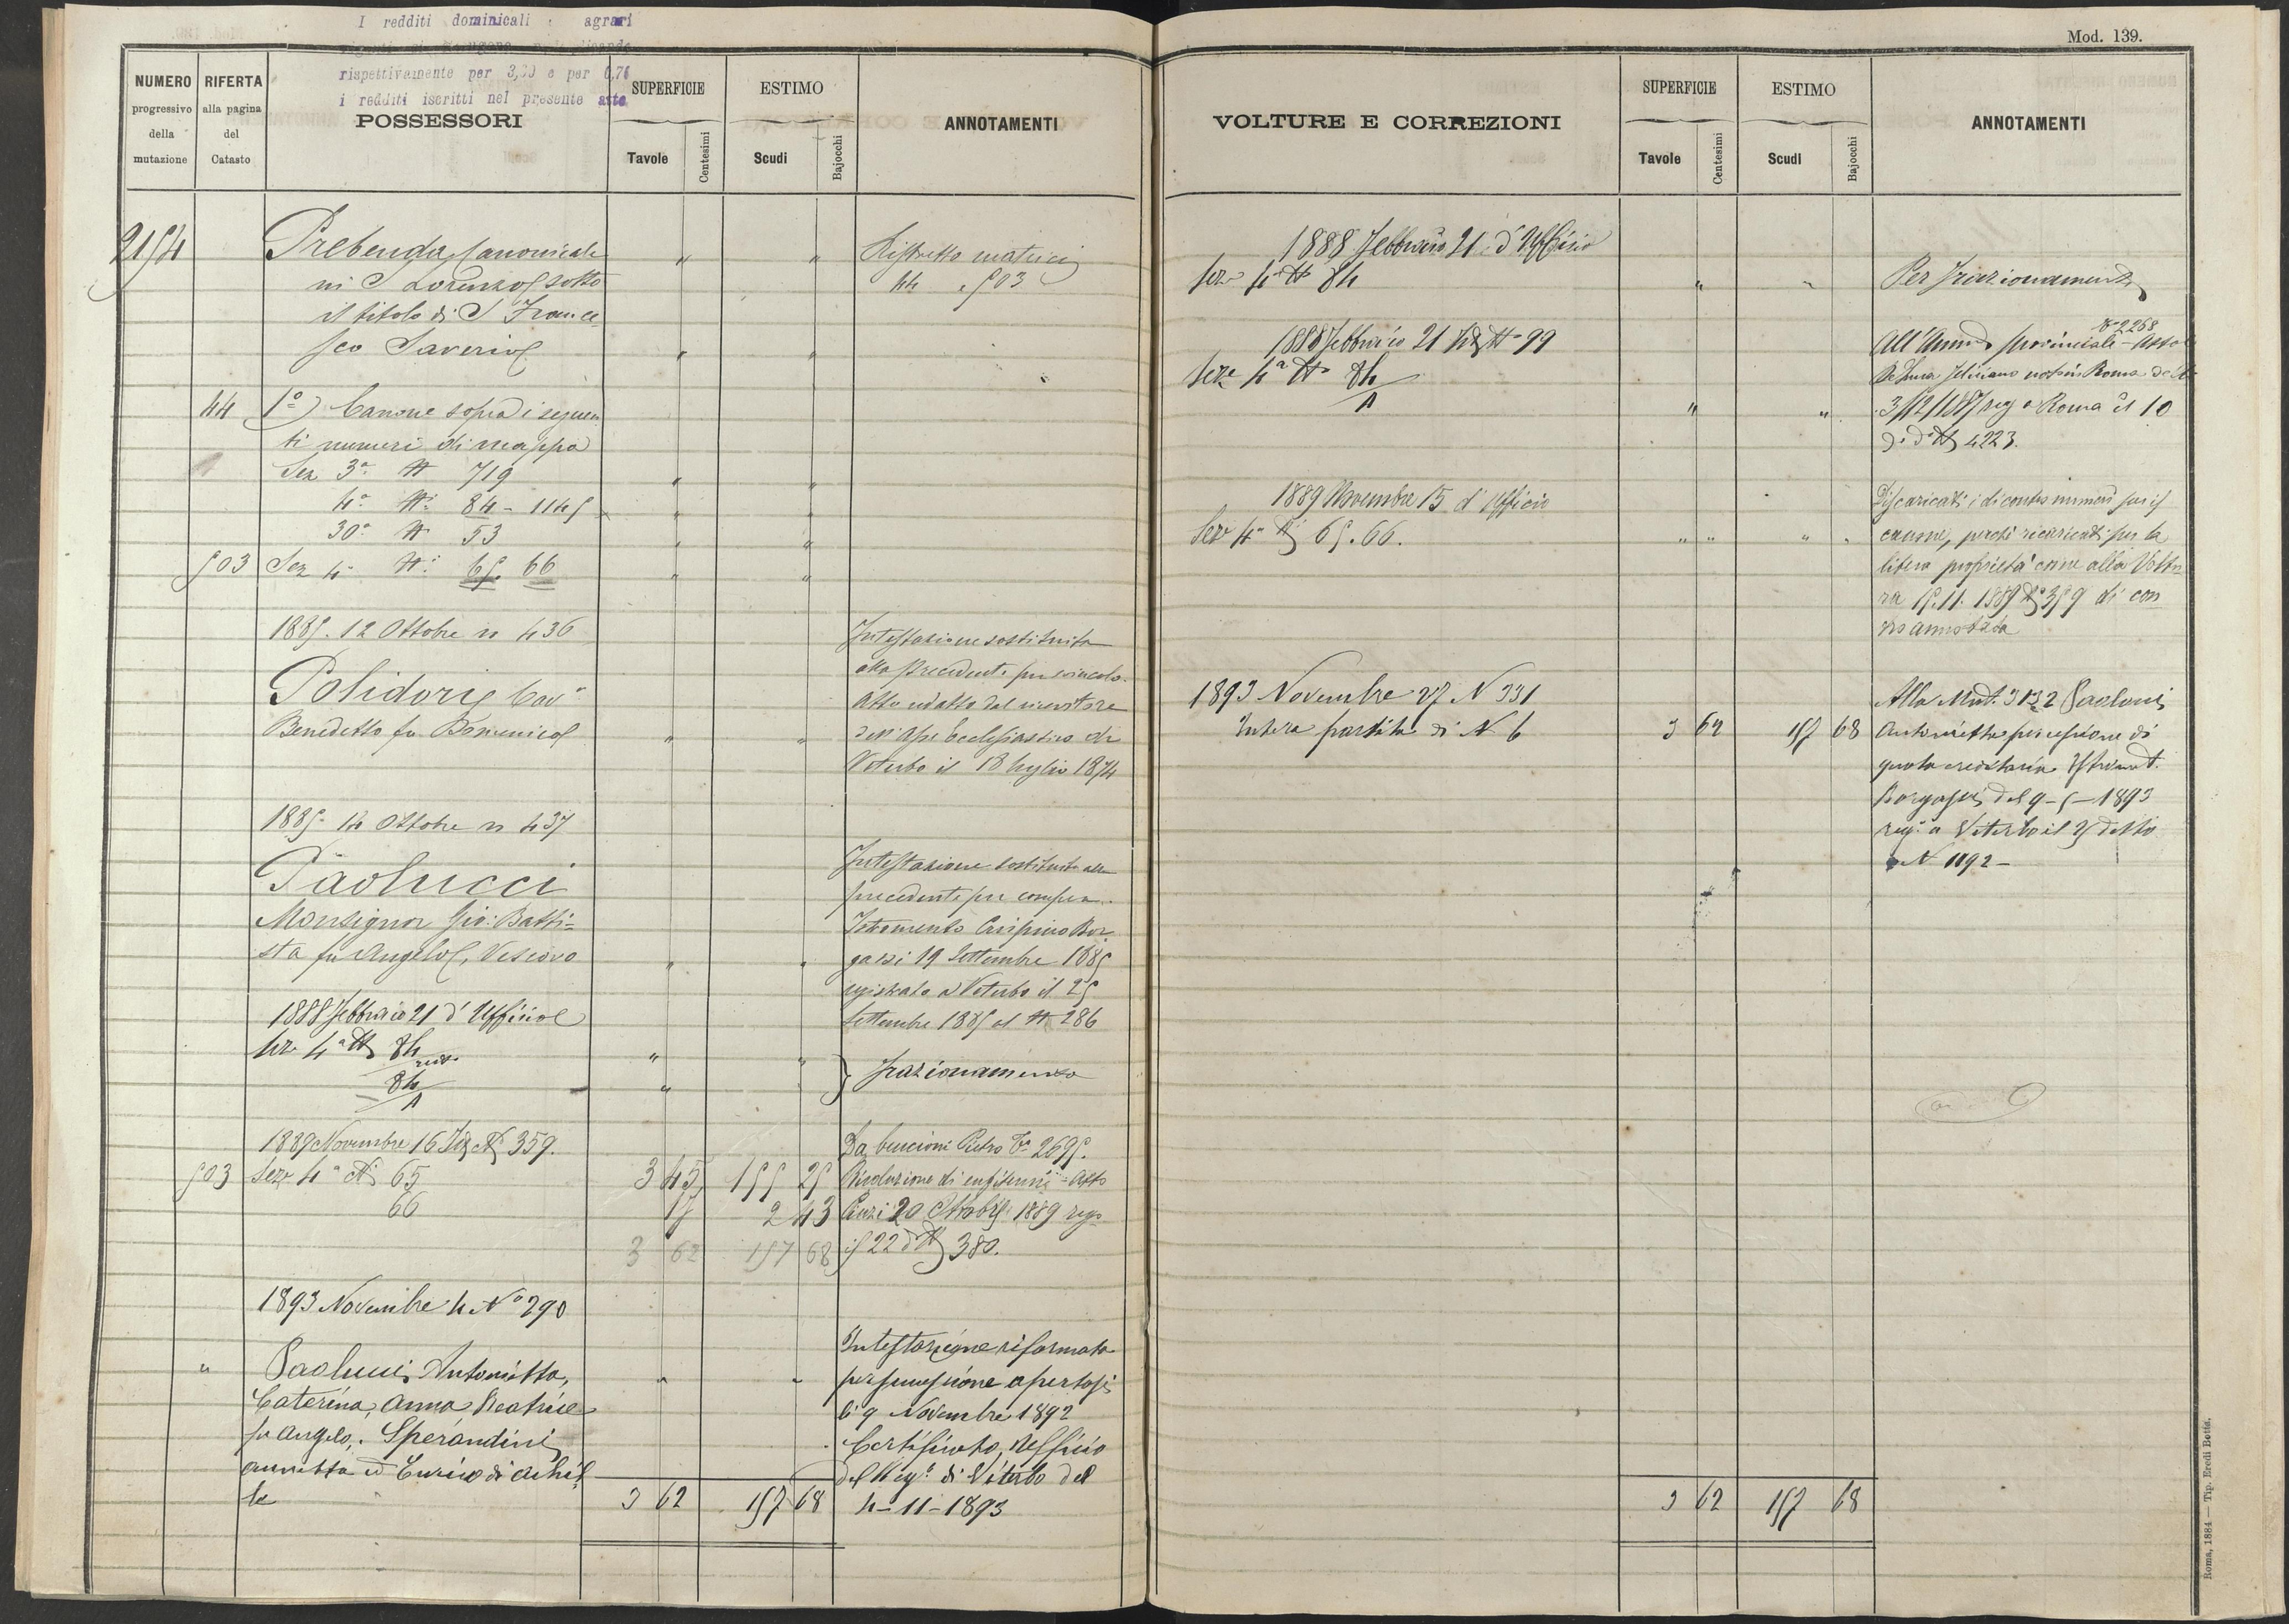 I redditi dominicali e agrari
rispettivamente per 3,30 e per 0,76
i redditi iscritti nel presente atto
Mod. 139.
NUMERO progressivo della mutazione
RIFERTA alla pagina del Catasto
POSSESSORI
SUPERFICIE
Tavole Centesimi
ESTIMO
Scudi Bajocchi
ANNOTAMENTI
2154 Prebenda Canonicale " " Ristretto matrici
in S Lorenzo sotto 44 . 503
il titolo di S France
sco Saverio " "
44 1º) Canone sopra i seguen
ti numeri di mappa
Sez 3ª N 719 " "
4ª Ni 84 - 1145 " "
30ª N 53 " "
503 Sez 4ª Ni 65. 66 " "
1885. 12 Ottobre n 436 Intestazione sostituita
alla precedente per svincolo.
Polidori Cav
Atto redatto dal ricevitore
Benedetto fu Domenico " "
dell'Asse Ecclesiastico di
Viterbo il 18 luglio 1874
1885. 14 Ottobre n 437
Intestazione sostituita alla
Paolucci
precedente per compra.
Monsignor Gio: Batti=
Istrumento Crispino Bor
sta fu Angelo, Vescovo " "
gassi 19 Settembre 1885
registrato a Viterbo il 25
1888 Febbraio 21 d'Ufficio
Settembre 1885 al N 286
Sez 4ª N 84 rest. " "
} Frazionamento
84/A "
1889 Novembre 16 N 359.
Da Pietro 2695.
503 Sez 4ª Ni 65 3 45 155 25 Risoluzione di enfiteusi = Atto
66 17 2 43 20 Ottobre 1889 reg
3 62 157 68 il 22 dº N 380.
1893 Novembre 4 Nº 290
Intestazione riformata
" Paolucci Antonietta, " " per successione apertasi
Caterina, Anna Beatrice li 9 Novembre 1892
fu Angelo, Sperandini Certificato, Ufficio
Annetta ed Enrico di Achil del Regº di Viterbo del
le 3 62 157 68 4-11-1893
VOLTURE E CORREZIONI
SUPERFICIE
Tavole Centesimi
ESTIMO
Scudi Bajocchi
ANNOTAMENTI
1888 Febbraio 21 d'Ufficio
Sez 4ª N 84 " " Per Frazionamento
1888 Febbraio 21 N 99
Nº 2268
All' Provinciale - Atto
Sez 4ª N 84/A
Feliciano not in Roma
" " 3/12/1887 reg a Roma il 10
dº N 4223.
1889 Novembre 15 d'Ufficio
Discaricati i di contro numeri per il
Sez 4ª N 65. 66. " " " " canone, perchè ricaricati per la
libera proprietà come alla Voltu
ra 15.11.1889 N 359 di con
tro annotata
1893 Novembre 27 N 331
Alla Mut. 3132 Paolucci
Intera partita di N 6 3 62 157 68 Antonietta per cessione di
quota ereditaria Istrumt.
Borgassi del 9-5-1893
reg. a Viterbo il 25 detto
N 1192 -
3 62 157 68
Roma, 1884 — Tip. Eredi Botta.